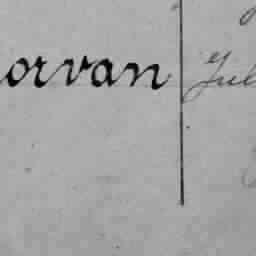 orvan Jul